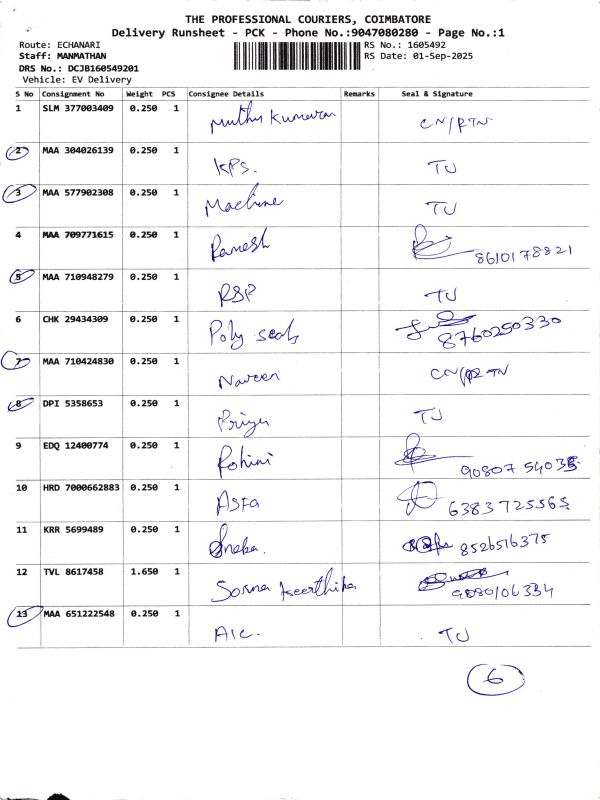 THE PROFESSIONAL COURIERS, COIMBATORE
Delivery Runsheet - PCK - Phone No.:9047080280 - Page No.:1
Route: ECHANARI RS No.: 1605492
Staff: MANMATHAN RS Date: 01-Sep-2025
DRS No.: DCJB160549201
Vehicle: EV Delivery
S No Consignment No Weight PCS Consignee Details Remarks Seal & Signature
1 SLM 377003409 0.250 1 Muthu Kumaran CN/RTN
2 MAA 304026139 0.250 1 KPS. TJ
3 MAA 577902308 0.250 1 Machine TJ
4 MAA 709771615 0.250 1 Ramesh 8610178821
5 MAA 710948279 0.250 1 RSP TJ
6 CHK 29434309 0.250 1 Poly seals 8760250330
7 MAA 710424830 0.250 1 Naveen CN/RTN
8 DPI 5358653 0.250 1 Priya TJ
9 EDQ 12400774 0.250 1 Rohini 90807 54035
10 HRD 7000662883 0.250 1 Asfa 6383725565
11 KRR 5699489 0.250 1 Sneka. 8526516375
12 TVL 8617458 1.650 1 Sorna Keerthika
13 MAA 651222548 0.250 1 AIC. TJ
6